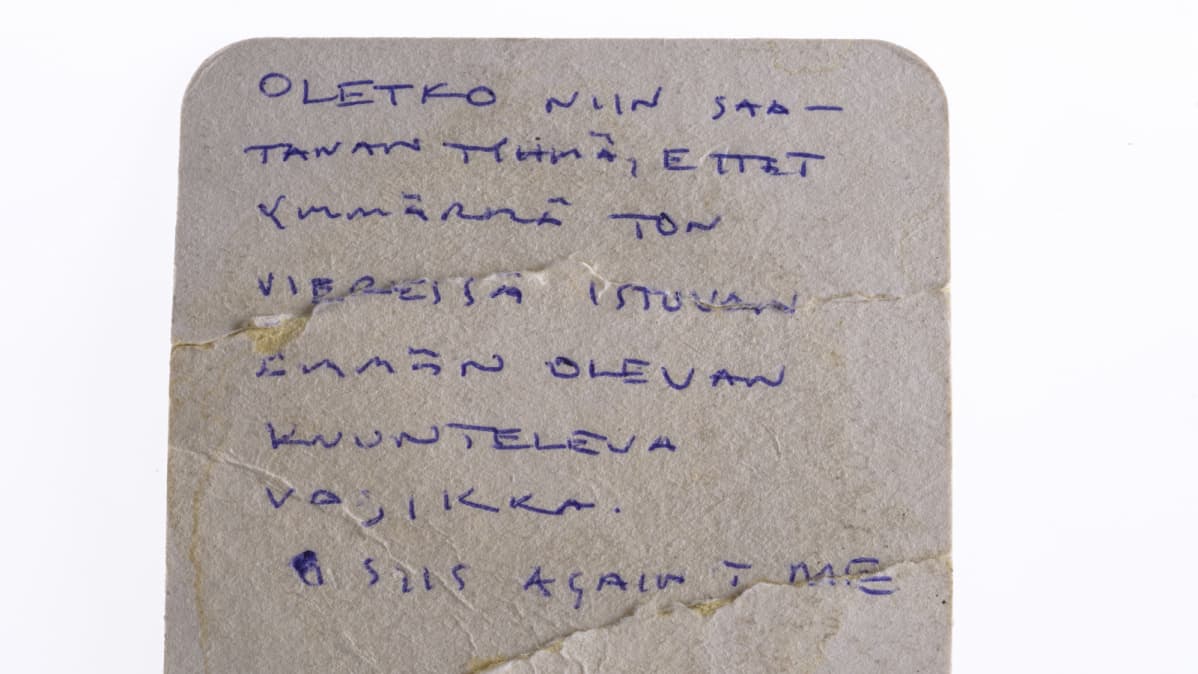 OLETKO NIIN SAA-
TANAN TYHMÄ, ETTET
YMMÄRRÄ TON
VIERESSÄ ISTUVAN
ÄMMÄN OLEVAN
KUUNTELEVA
VAJIKKA.
SIIS AGAIN T ME